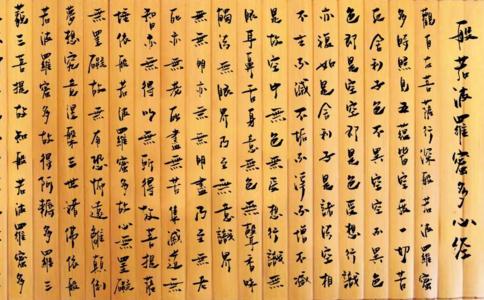 般若波羅蜜多心經
觀自在菩薩行深般若波羅蜜
多時照見五蘊皆空度一切苦
厄舍利子色不異空空不異色
色即是空空即是色受想行識
亦復如是舍利子是諸法空相
不生不滅不垢不淨不增不減
是故空中無色無受想行識無
眼耳鼻舌身意無色聲香味
觸法無眼界乃至無意識界
無無明亦無無明盡乃至無老
死亦無老死盡無苦集滅道無
智亦無得以無所得故菩提薩
埵依般若波羅蜜多故心無罣礙
無罣礙故無有恐怖遠離顛倒
夢想究竟涅槃三世諸佛依般
若波羅蜜多故得阿耨多羅三
藐三菩提故知般若波羅蜜多